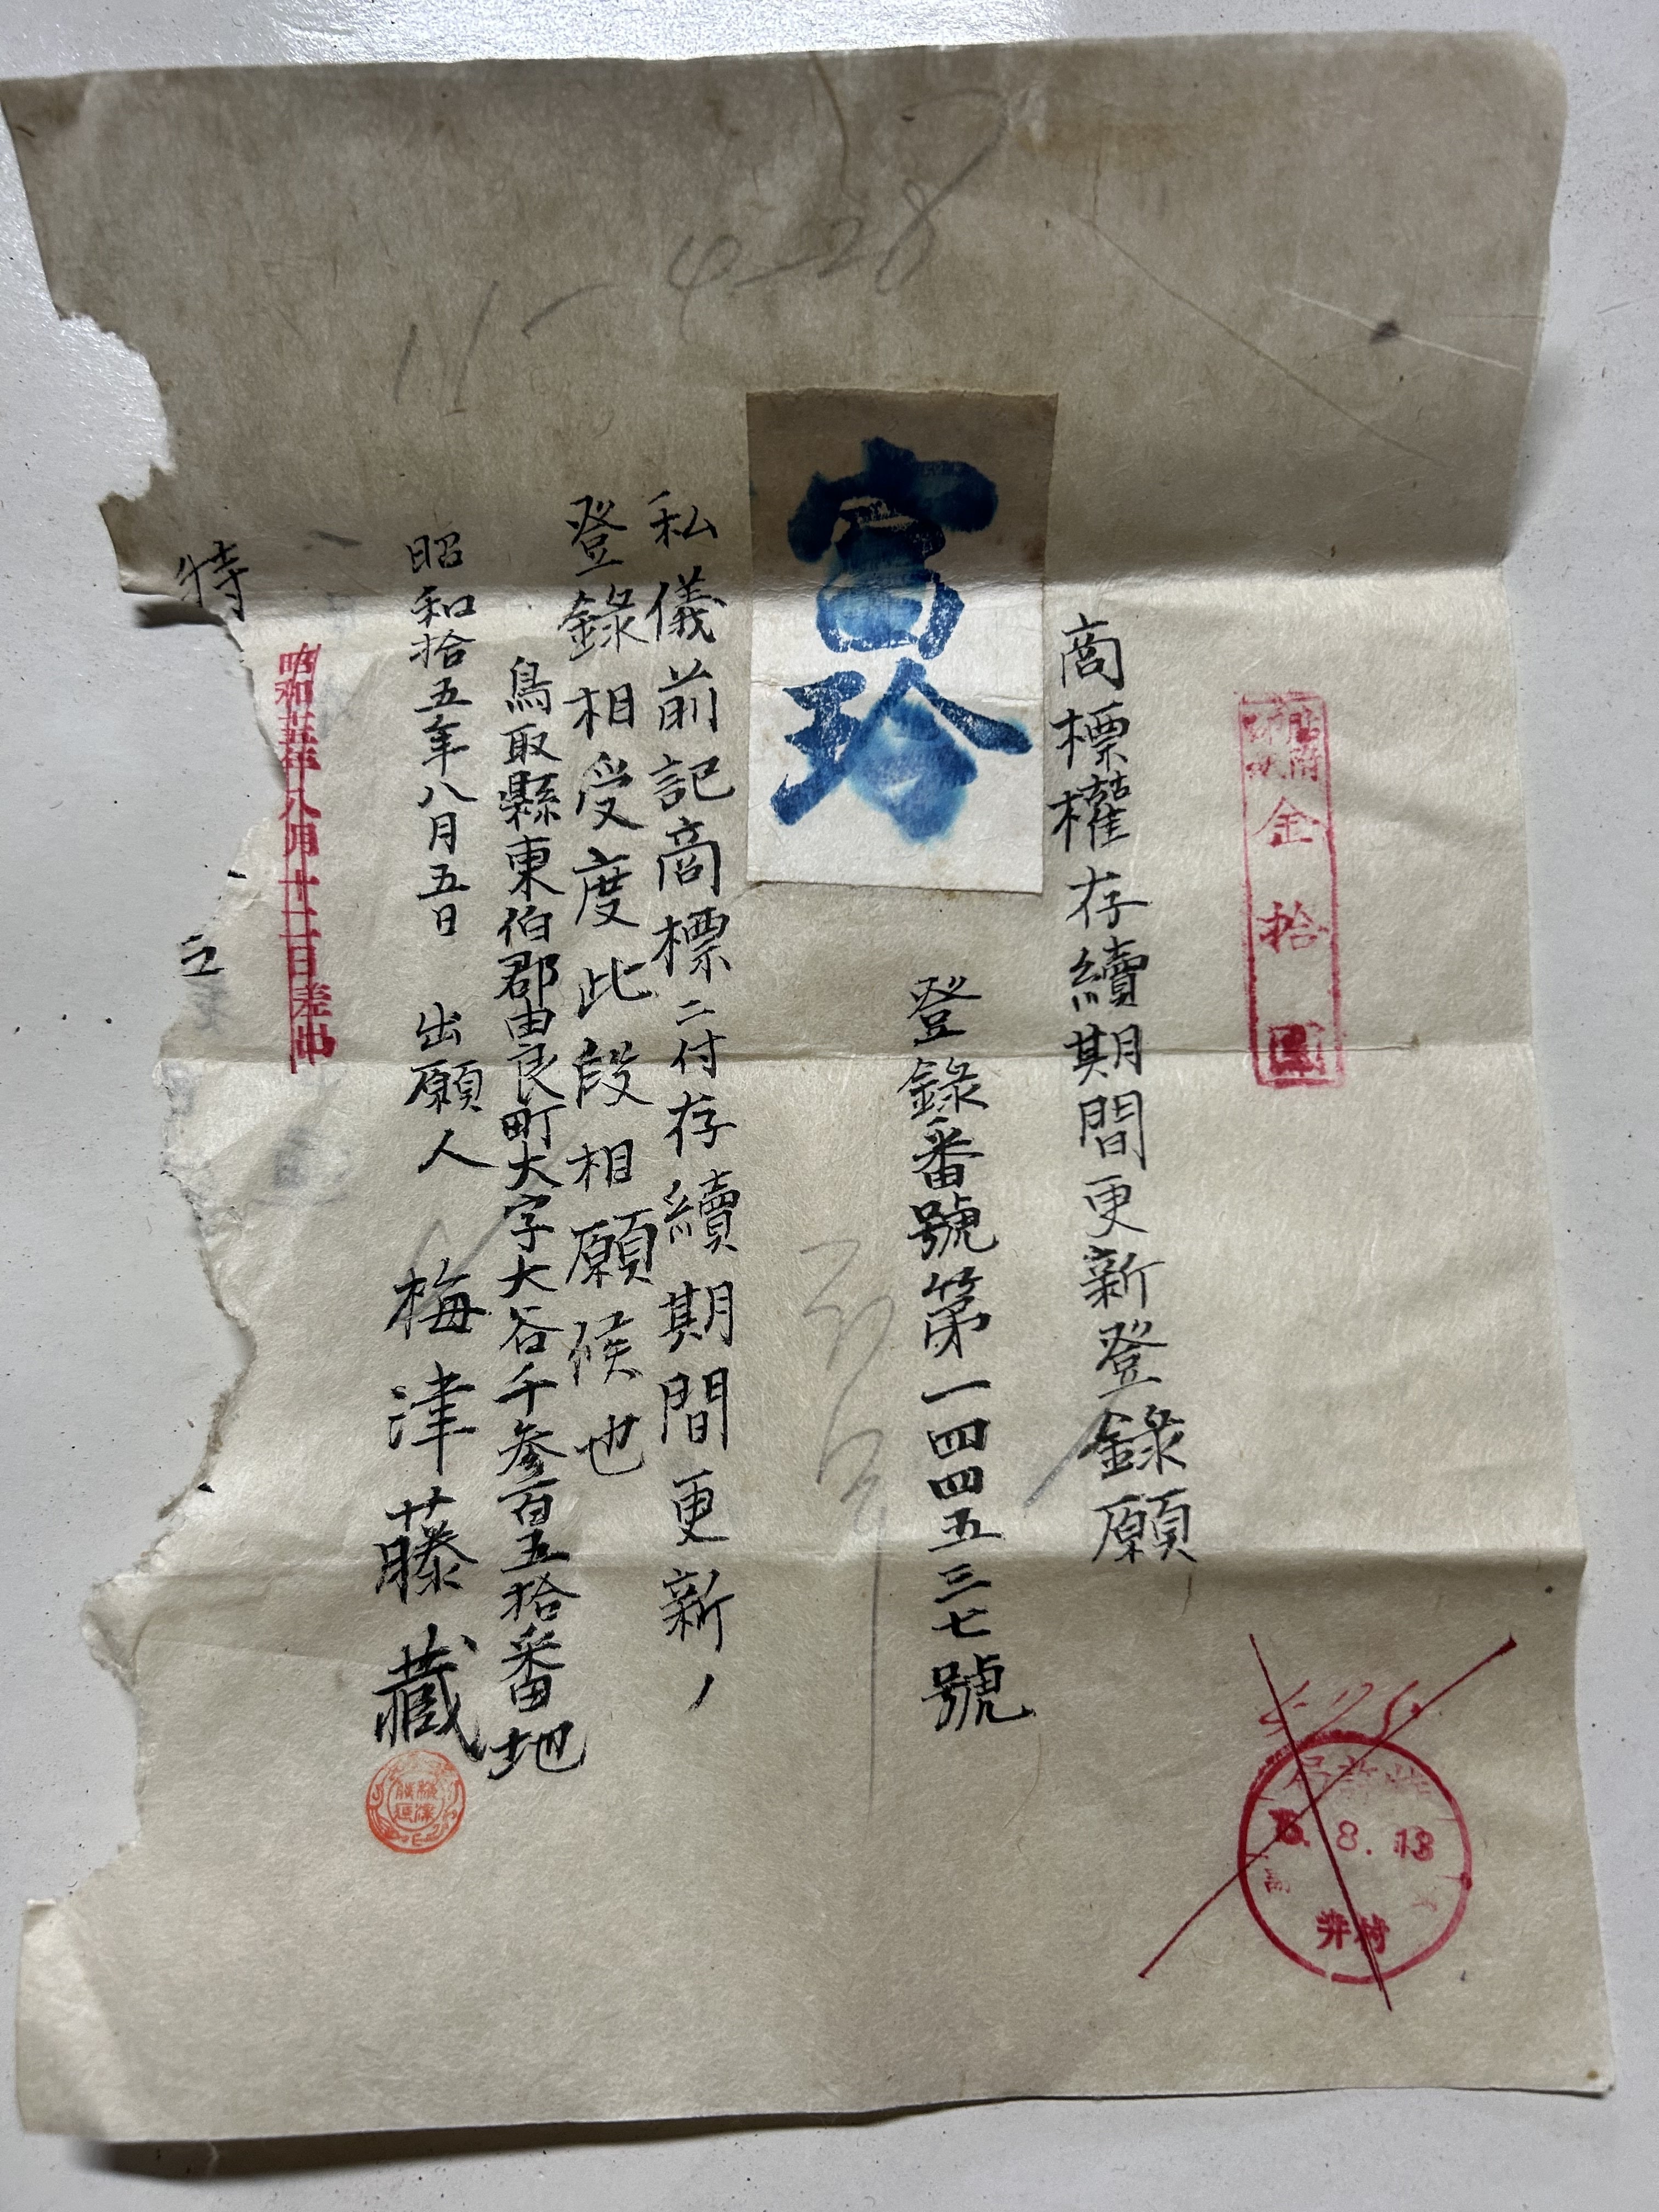 金拾圓
商標權存續期間更新登錄願
登錄番號第一四四五三七號
富玲
私儀前記商標ニ付存續期間更新ノ
登錄相受度此段相願候也
鳥取縣東伯郡由良町大字大谷千参百五拾番地
昭和拾五年八月五日 出願人 梅津藤藏
昭和十五年八月十二日差出
特
11-4-28
8.13